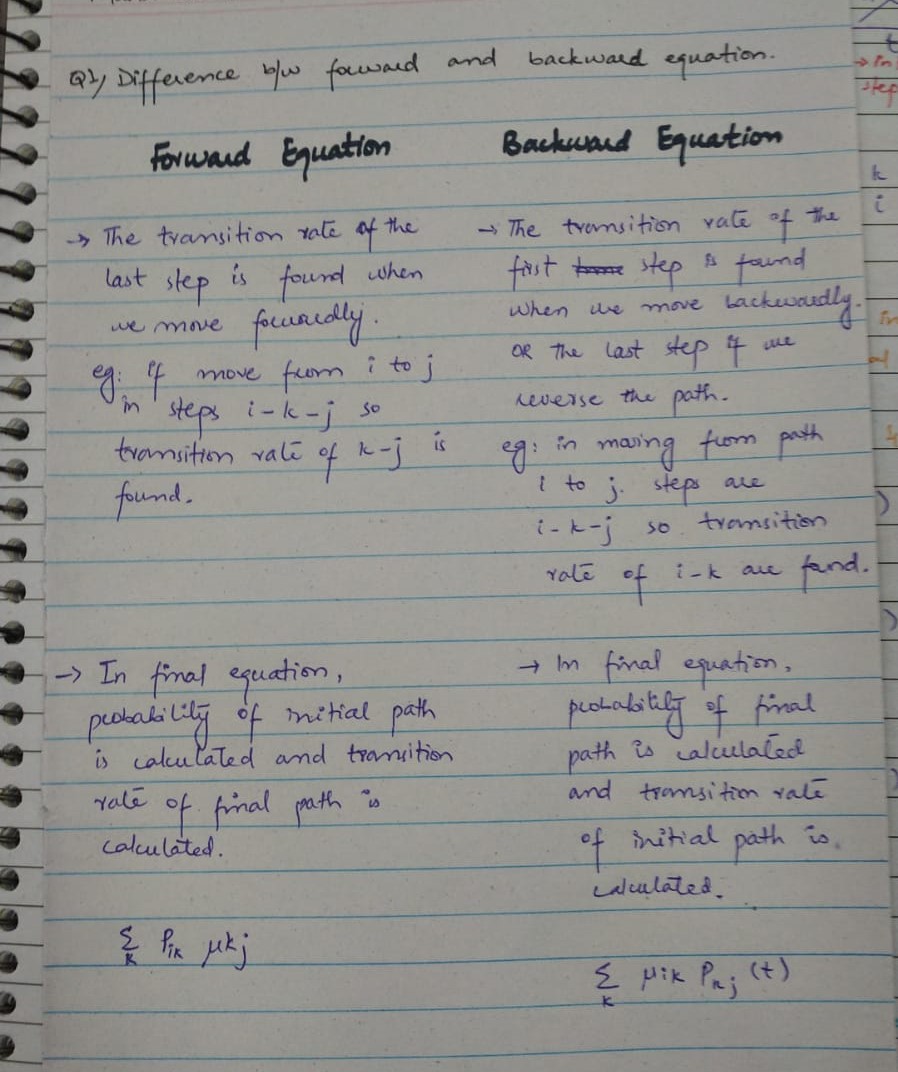 Q1) Difference b/w forward and backward equation.
Forward Equation
→ The transition rate of the
last step is found when
we move forwardly.
eg: if move from i to j
in steps i-k-j so
transition rate of k-j is
found.
→ In final equation,
probability of initial path
is calculated and transition
rate of final path is
calculated.
Σ Pik μkj
k
Backward Equation
→ The transition rate of the
first step is found
when we move backwardly.
OR the last step if we
reverse the path.
eg: in moving from path
i to j. steps are
i-k-j so transition
rate of i-k are found.
→ In final equation,
probability of final
path is calculated
and transition rate
of initial path is
calculated.
Σ μik Pkj (t)
k
t
→ in
step
k
i
in